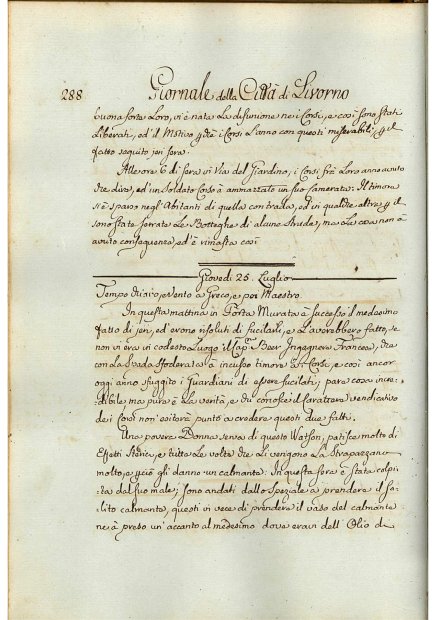 288 Giornale della Città di Livorno
buona sorte Loro, vi è nata La disunione nei Corsi, e così sono stati
Liberati, ed il Motivo p che i Corsi L'anno con questi miserabili, p il
fatto seguito jeri sera
Alle ore 6 di sera in Via del Giardino, i Corsi frà Loro anno avuto
che dire, ed un Soldato Corso à ammazzato un suo Camerata: Il timore
si è sparso negl'Abitanti di quella contrada, ed in qualche altra, p il
sono state serrate Le Botteghe di alcune Strade, ma La cosa non à
avuto conseguenze, ed è rimasta così
Giovedì 25. Luglio
Tempo Chiaro, e Vento a Greco, e poi Maestro
In questa mattina in Porta Murata è successo il medesimo
fatto di jeri, ed erono risoluti di fucilarli, e L'averebbero fatto, se
non vi era in codesto Luogo il Cap. Beer Ingegnere Francese, che
con La Spada sfoderata à incusso timore ai Corsi, e così ancor
oggi anno sfuggito i Guardiani di essere fucilati; pare cosa incre=
dibile ma pure è La verità, e chi conosce il Carattere vendicativo
dei Corsi non esiterà punto a credere questi due fatti.
Una povera Donna serva di questo Watson, patisce molto di
Effetti Sterici, e tutte Le volte che Li vengono La Strapazzano
molto, e p ciò gli danno un calmante. In questa sera è stata colpi=
ta dal suo male; sono andati dallo Speziale a prendere il so=
lito calmante, questi in vece di prendere il vaso del calmante
ne à preso un'accanto al medesimo dove eravi dell'Olio di